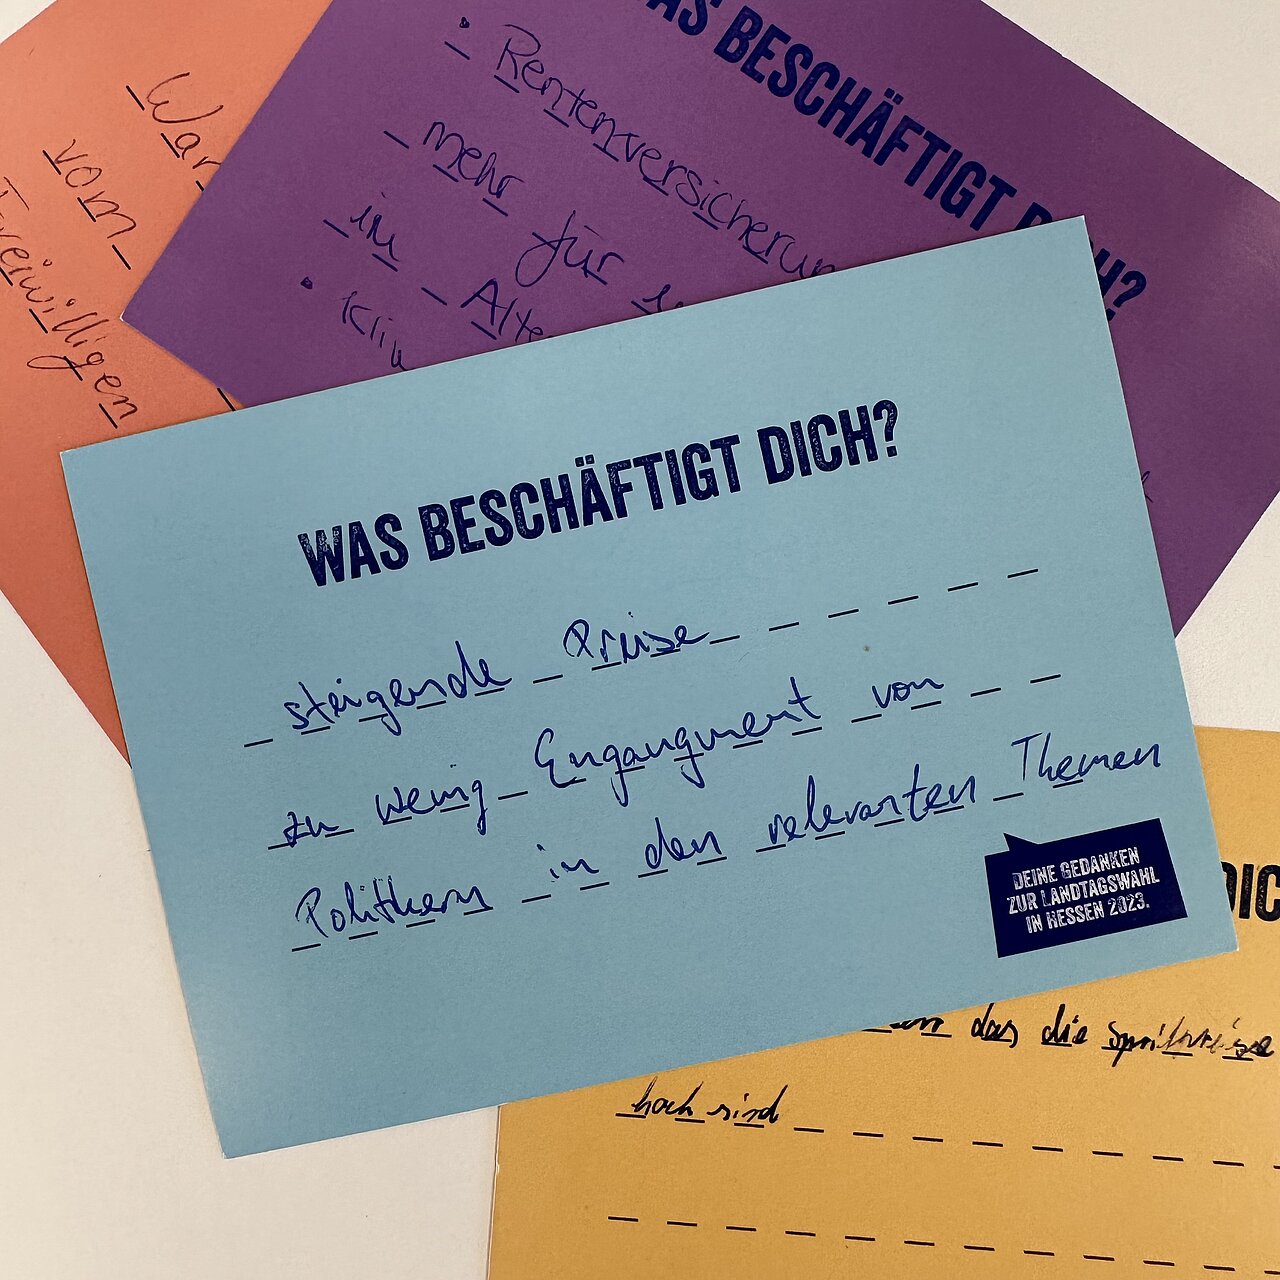 War
vom
Freiwilligen
WAS BESCHÄFTIGT DICH?
• Rentenversicherun
mehr für
im Alte
• Kli
WAS BESCHÄFTIGT DICH?
steigende Preise
zu wenig Engangment von
Politikern in den relevanten Themen
DEINE GEDANKEN
ZUR LANDTAGSWAHL
IN HESSEN 2023.
DIC
das die Spritpreise
hoch sind